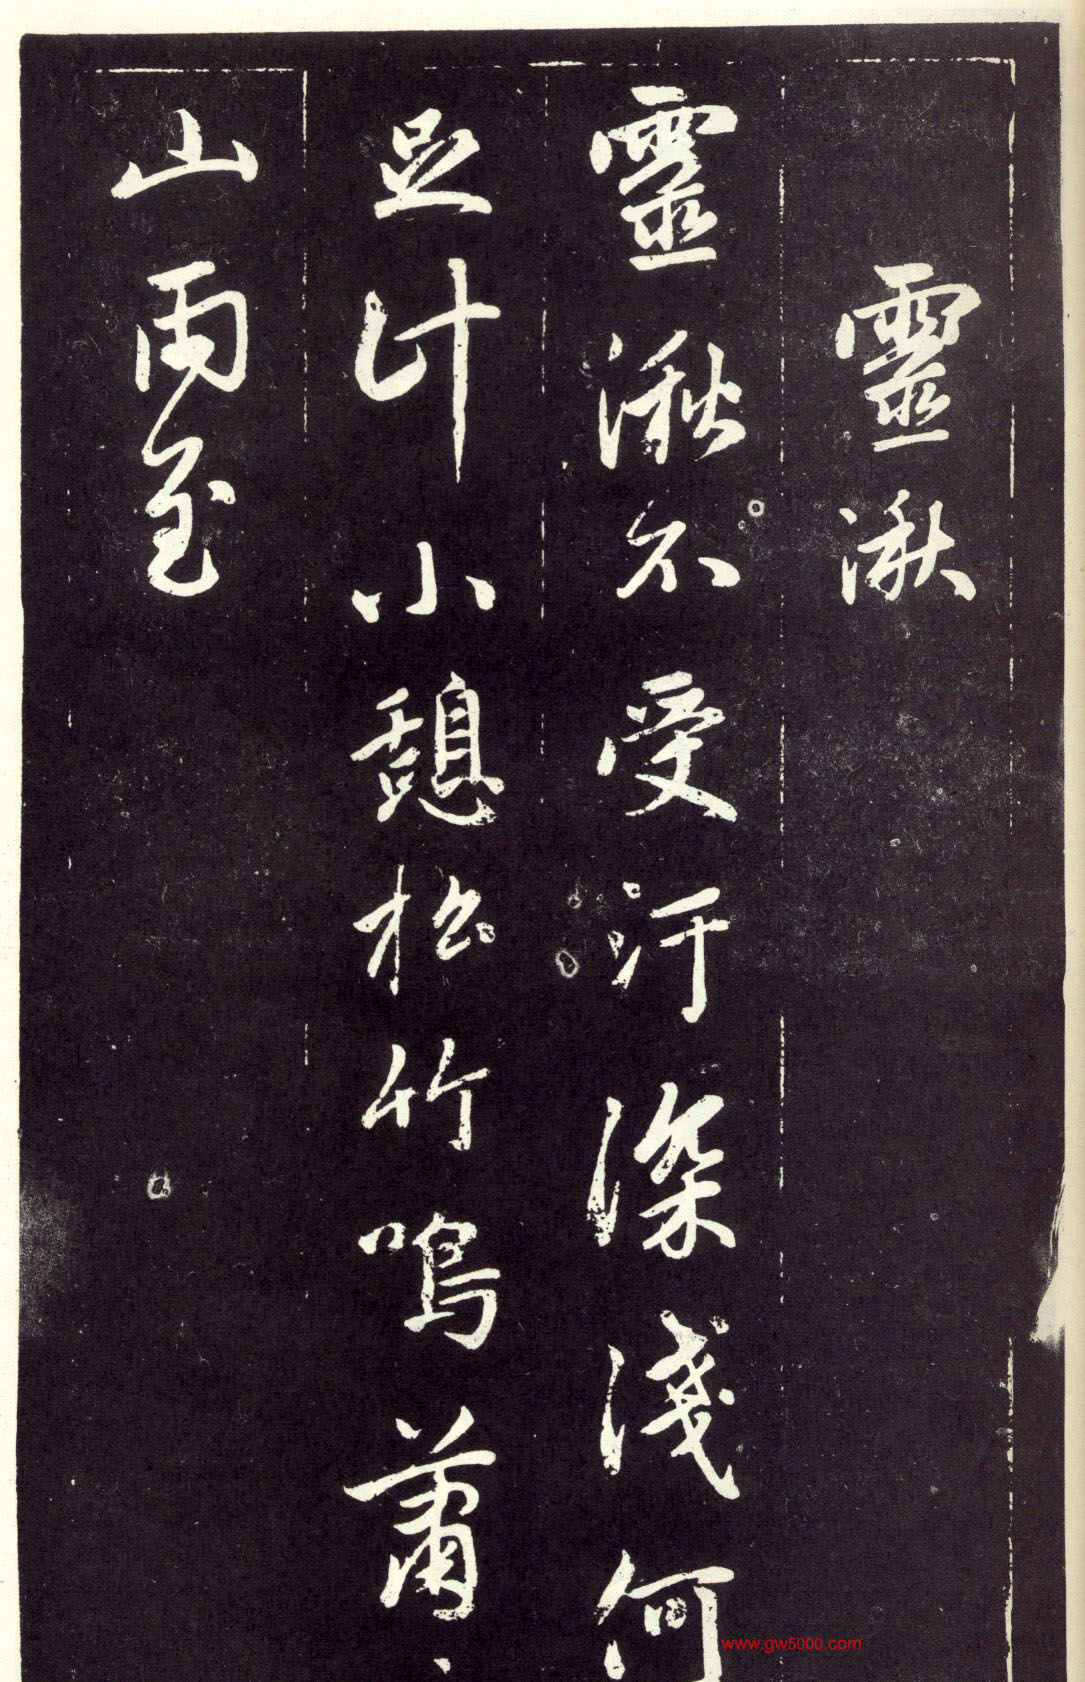 靈湫
靈湫不受汙深淺何
足計小憩松竹鳴蕭〻
山雨至
www.gw5000.com